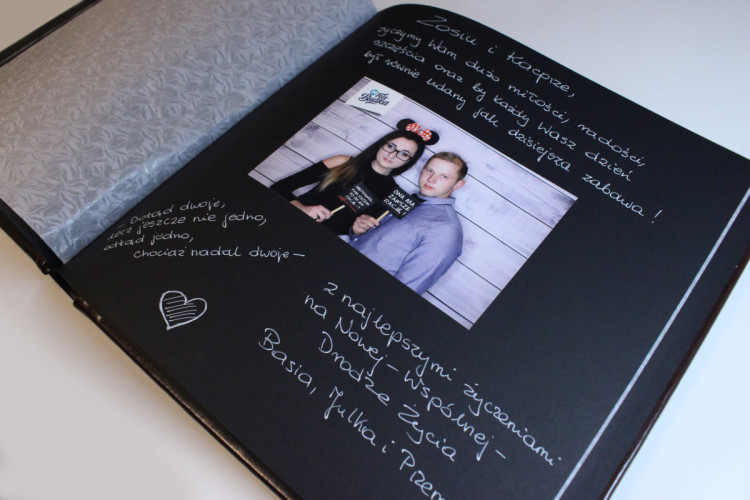 Zosiu i Kacprze,
życzymy Wam dużo miłości, radości,
szczęścia oraz by każdy Wasz dzień
był równie udany jak dzisiejsza zabawa!
Foto
Budka
ONA MA
ZAWSZE
RACJĘ!
Dotąd dwoje,
lecz jeszcze nie jedno,
odtąd jedno,
chociaż nadal dwoje –
z najlepszymi życzeniami
na Nowej – Wspólnej –
Drodze Życia
Basia, Julka i Przem